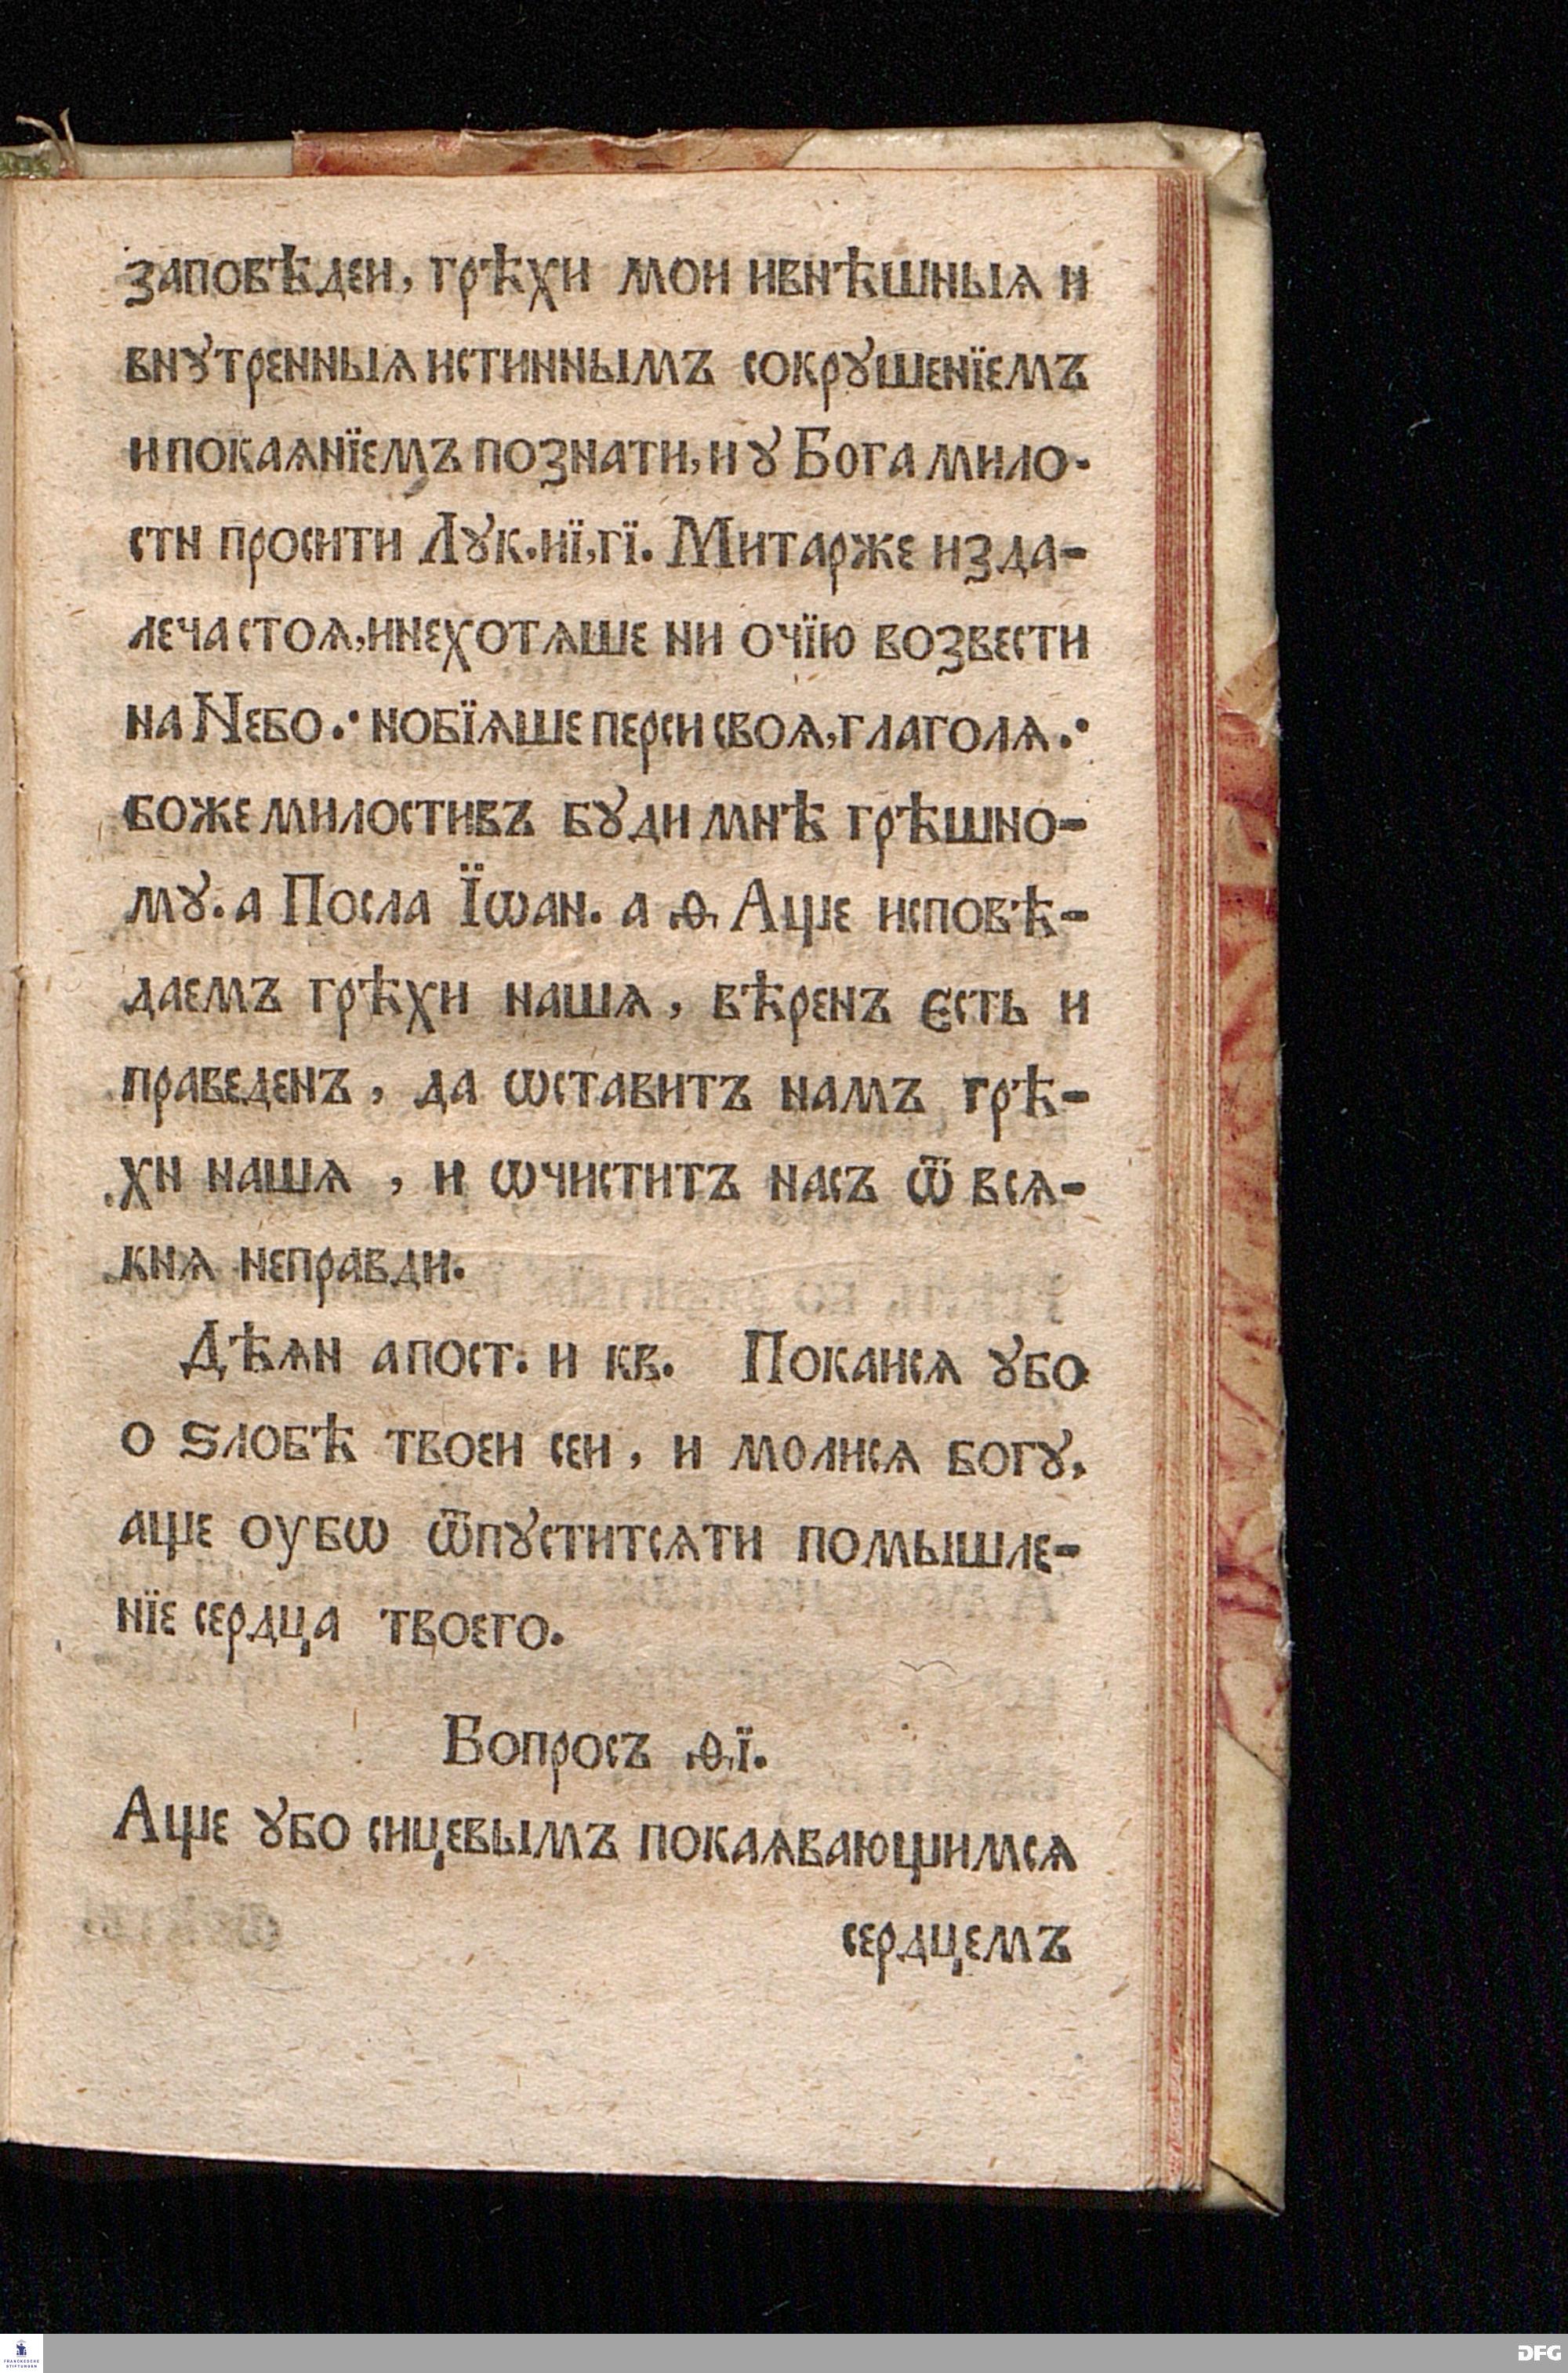 заповѣден, грѣхи мои ивнѣшныѧ и
внꙋтренныѧ истиннымъ сокрꙋшенїемъ
и покаѧнїемъ познати, и ꙋ Бога мило-
сти просити Лꙋк. иї, гї. Митарже изда-
леча стоѧ, инехотѧше ни очїю возвести
на Небо .· нобїѧше перси своѧ, глаголѧ .·
боже милостивъ бꙋди мнѣ грѣшно-
мꙋ. а Посла Їѡан. а ѳ, Аще исповѣ-
даемъ грѣхи нашѧ, вѣренъ єсть и
праведенъ, да ѡставитъ намъ грѣ-
хи нашѧ, и ѡчиститъ насъ ѿ всѧ-
киѧ неправди.
Дѣѧн апост. и кв. Покаисѧ ꙋбо
о ѕлобѣ твоеи сеи, и молисѧ богꙋ,
аще оубѡ ѿпꙋститсѧти помышле-
нїе сердца твоего.
Вопросъ ѳї.
Аще ꙋбо сицевымъ покаѧвающимсѧ
сердцемъ
FRANCKESCHE STIFTUNGEN
DFG